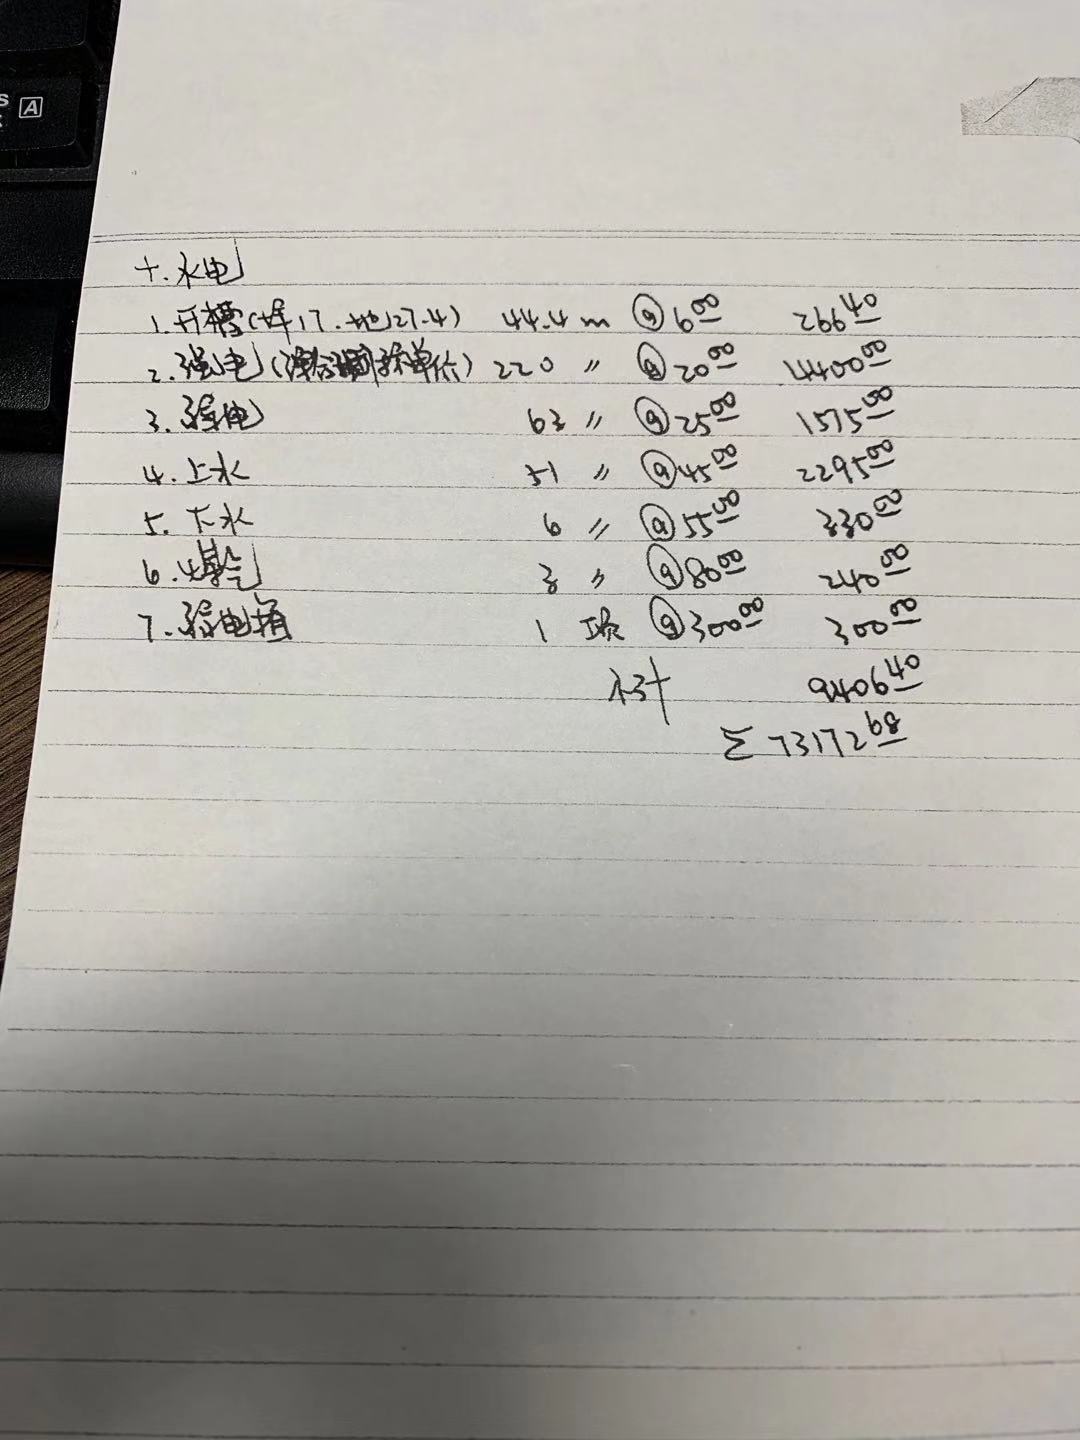 十.水电
1.开槽(墙17.地27.4) 44.4 m @6.00 266.40
2.强电(综合调标单价) 220 〃 @20.00 4400.00
3.弱电 63 〃 @25.00 1575.00
4.上水 51 〃 @45.00 2295.00
5.下水 6 〃 @55.00 330.00
6.燃气 3 〃 @80.00 240.00
7.弱电箱 1 项 @300.00 300.00
小计 9406.40
Σ 73172.68